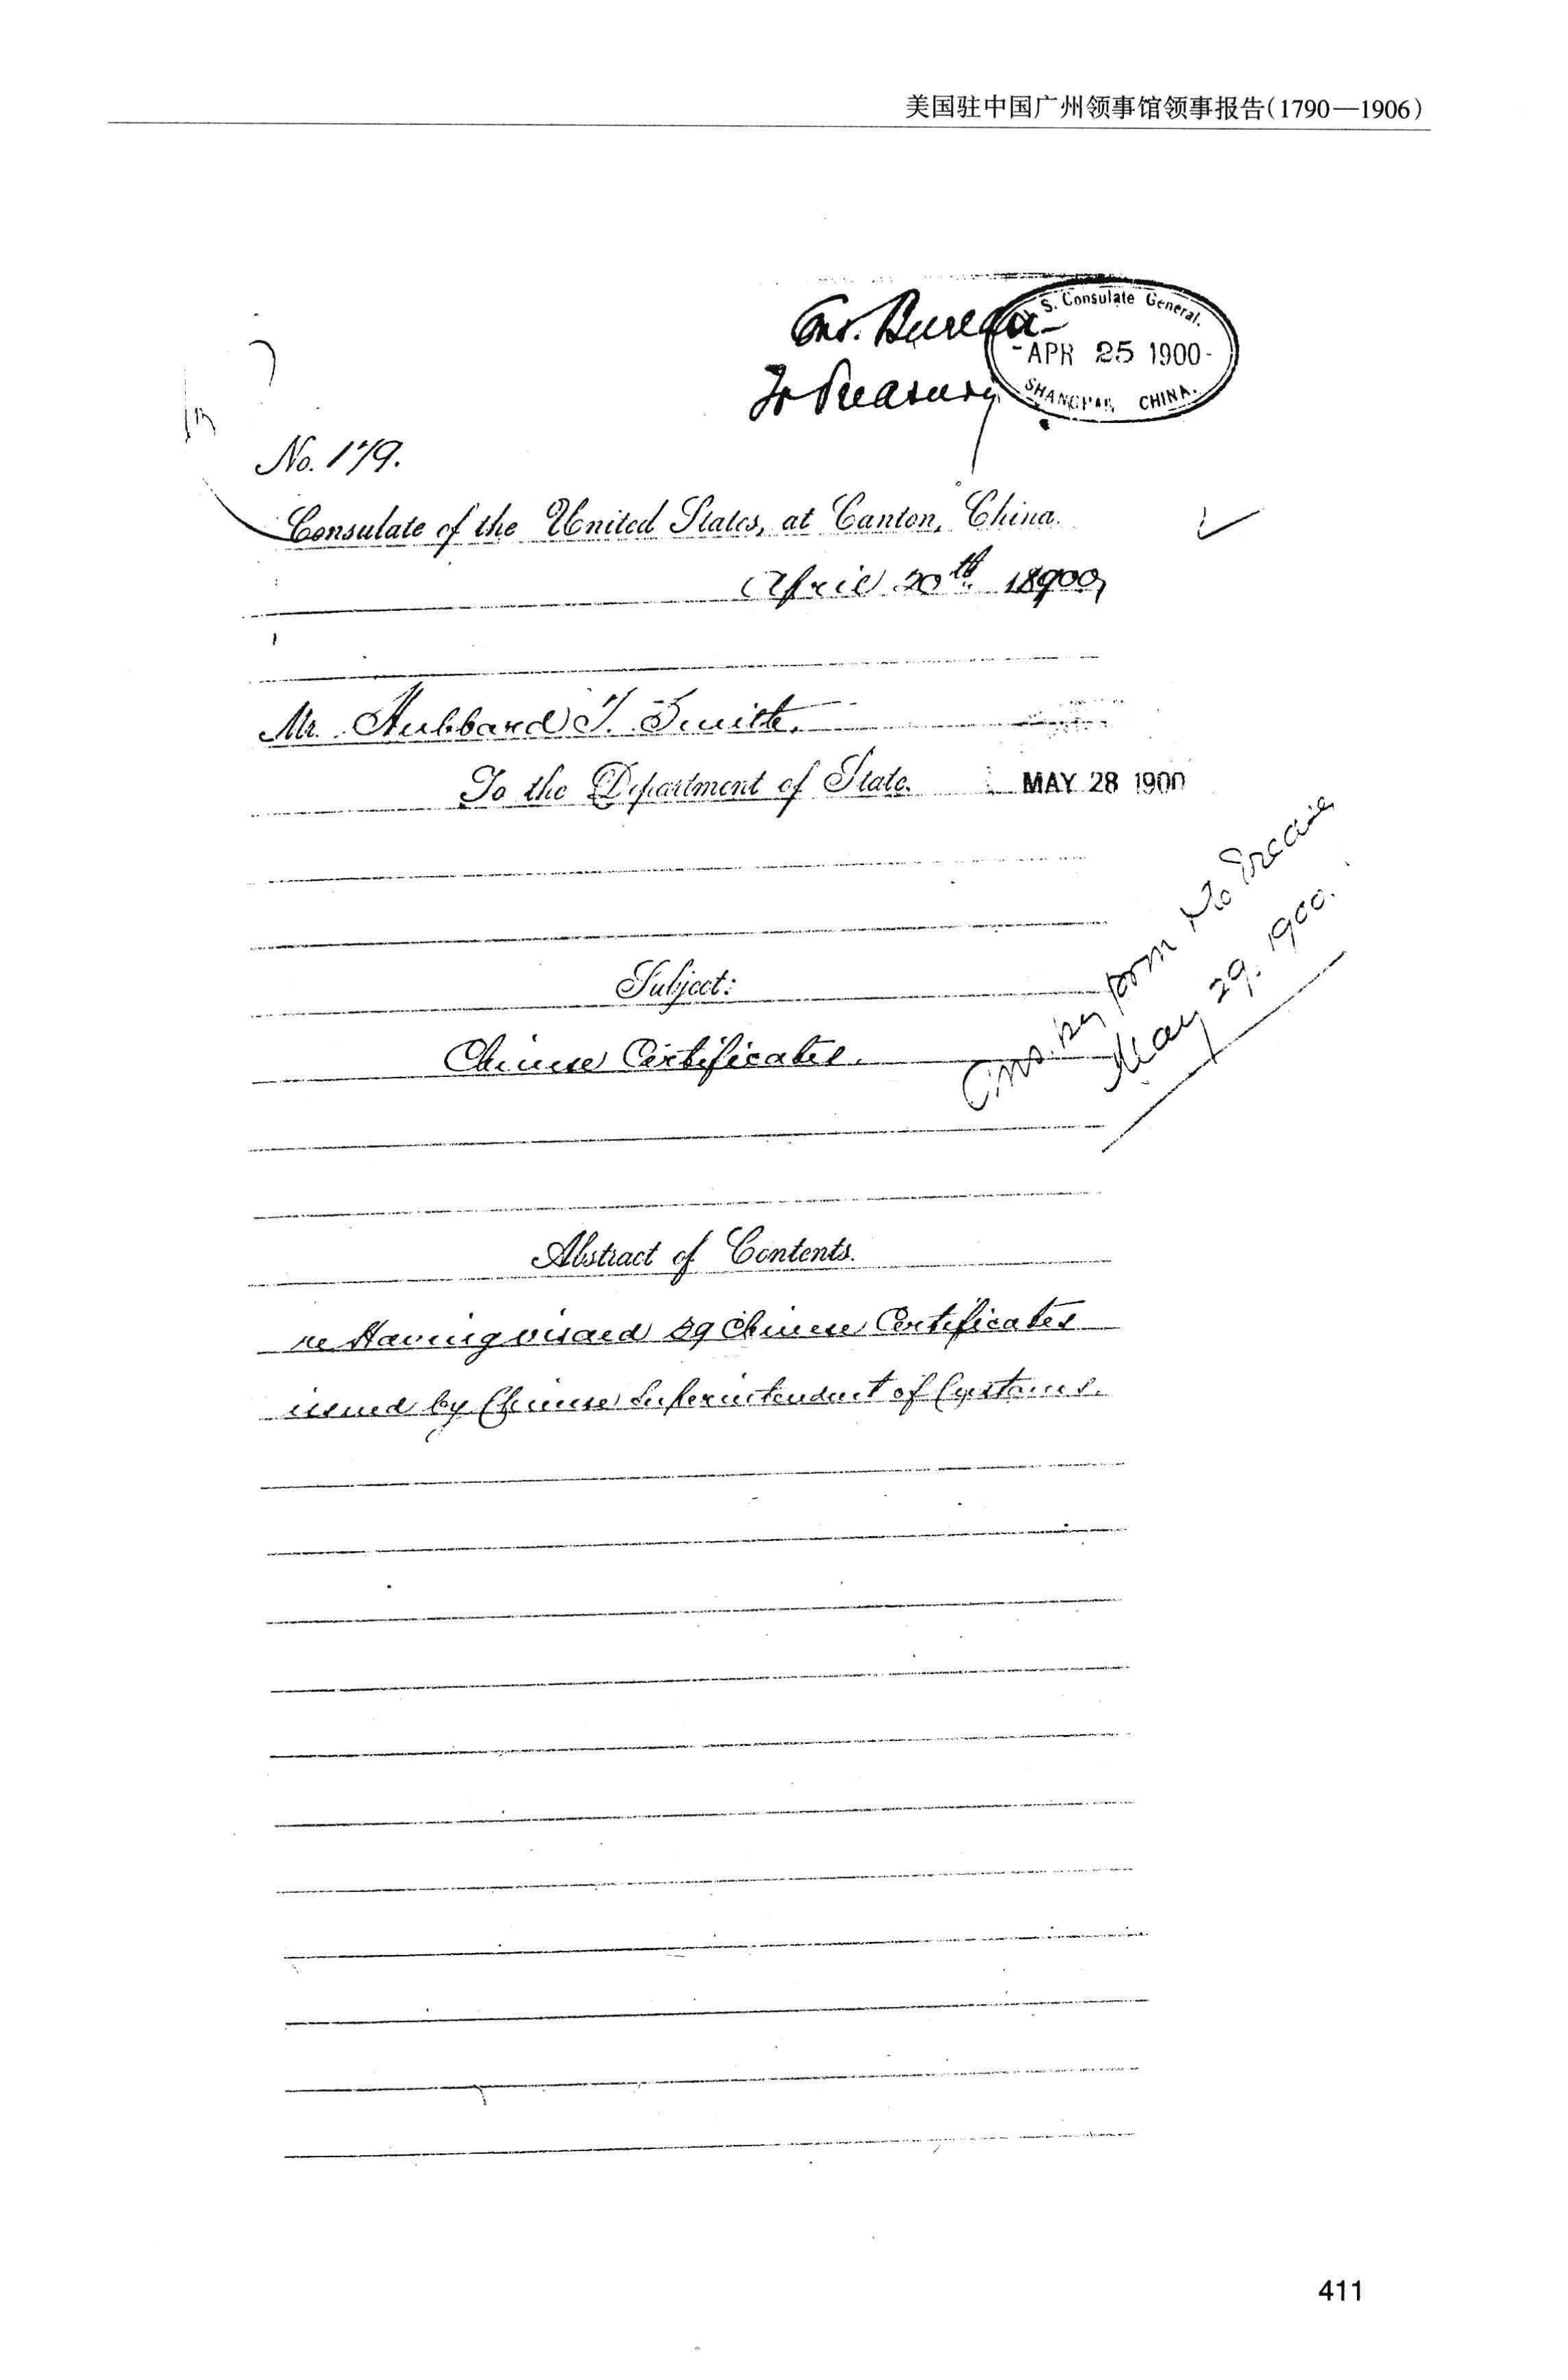 美国驻中国广州领事馆领事报告(1790—1906)
Bureau
To Treasury
S. Consulate General.
APR 25 1900
SHANGHAI, CHINA.
No. 179.
Consulate of the United States, at Canton, China.
April 20th 18900,
Mr. Hubbard T. Smith.
To the Department of State.
MAY 28 1900
Subject:
Chinese Certificates.
Ans. by form
May 29. 1900.
Abstract of Contents.
re Having visaed 29 Chinese Certificates
issued by Chinese Superintendent of Customs.
411